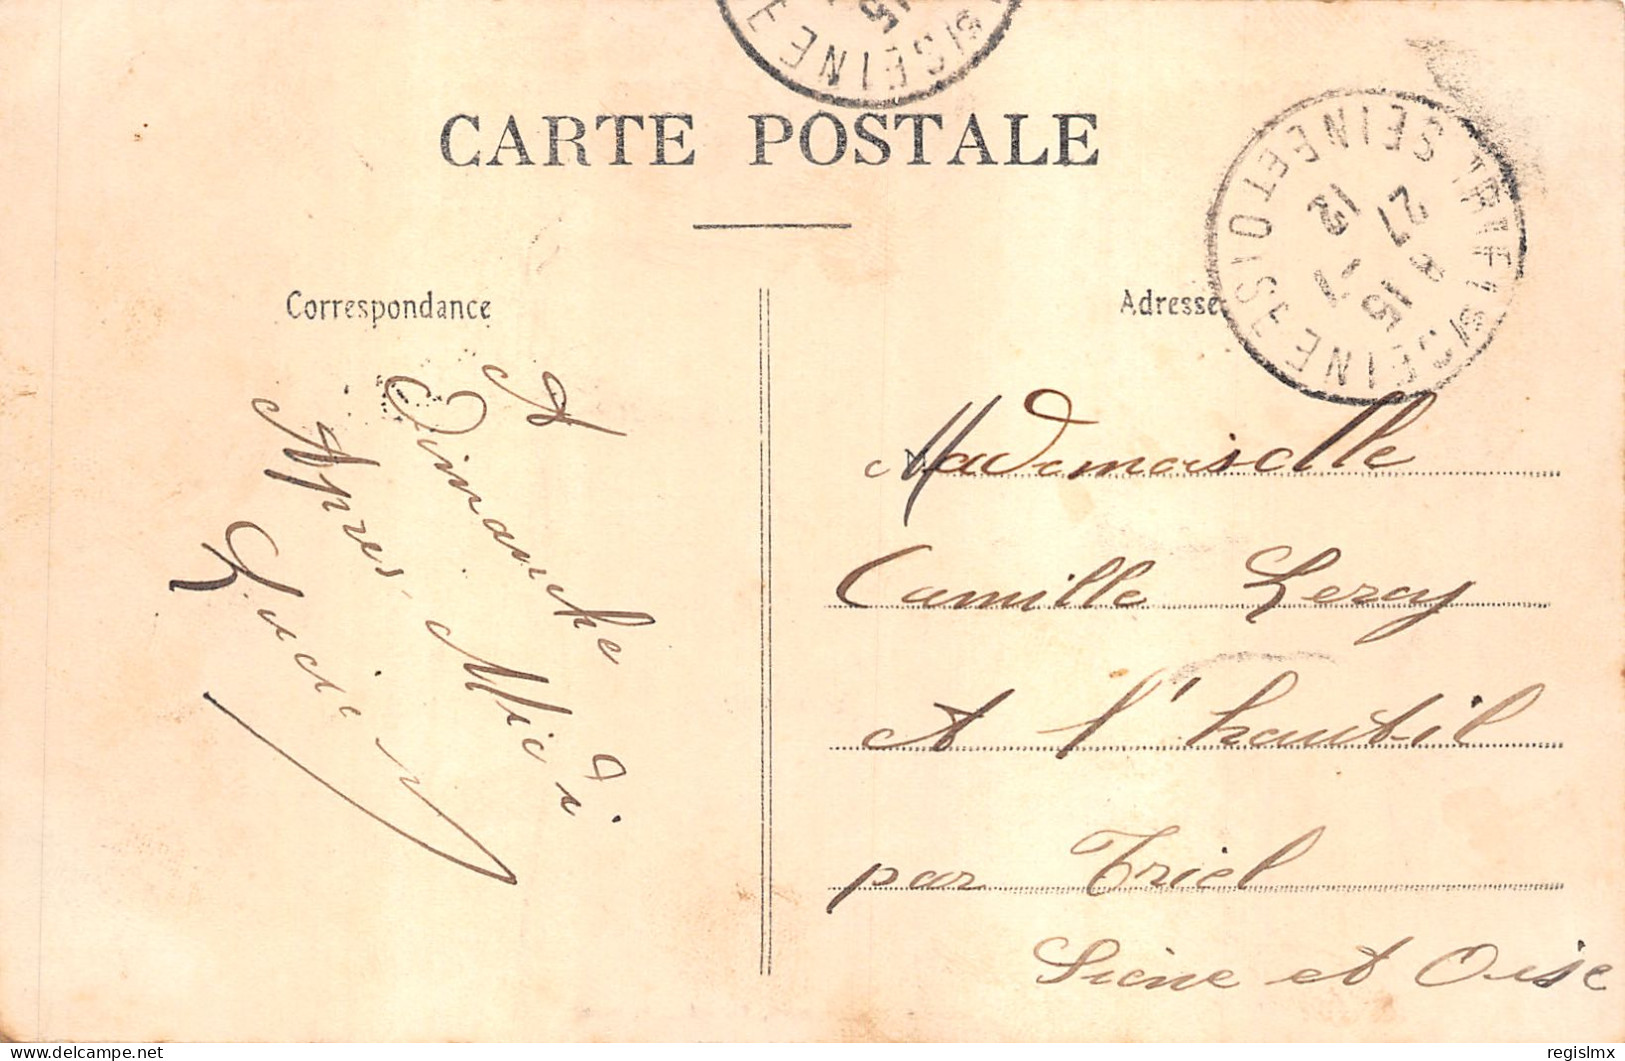 CARTE POSTALE
Correspondance
A
Dimanche
Après Midi
Lucie
Adresse
Mademoiselle
Camille Leroy
A l'hautil
par Triel
Sieine et Oise
SEINE
TRIEL S/SEINE
SEINE ET OISE
27
12
delcampe.net
regislmx